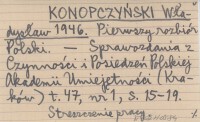 KONOPCZYŃSKI Wła-
dysław 1946. Pierwszy rozbiór
Polski. — Sprawozdania z
Czynności i Posiedzeń Polskiej
Akademii Umiejętności (Kra-
ków) t. 47, nr 1, s. 15-19.
Streszczenie pracy.